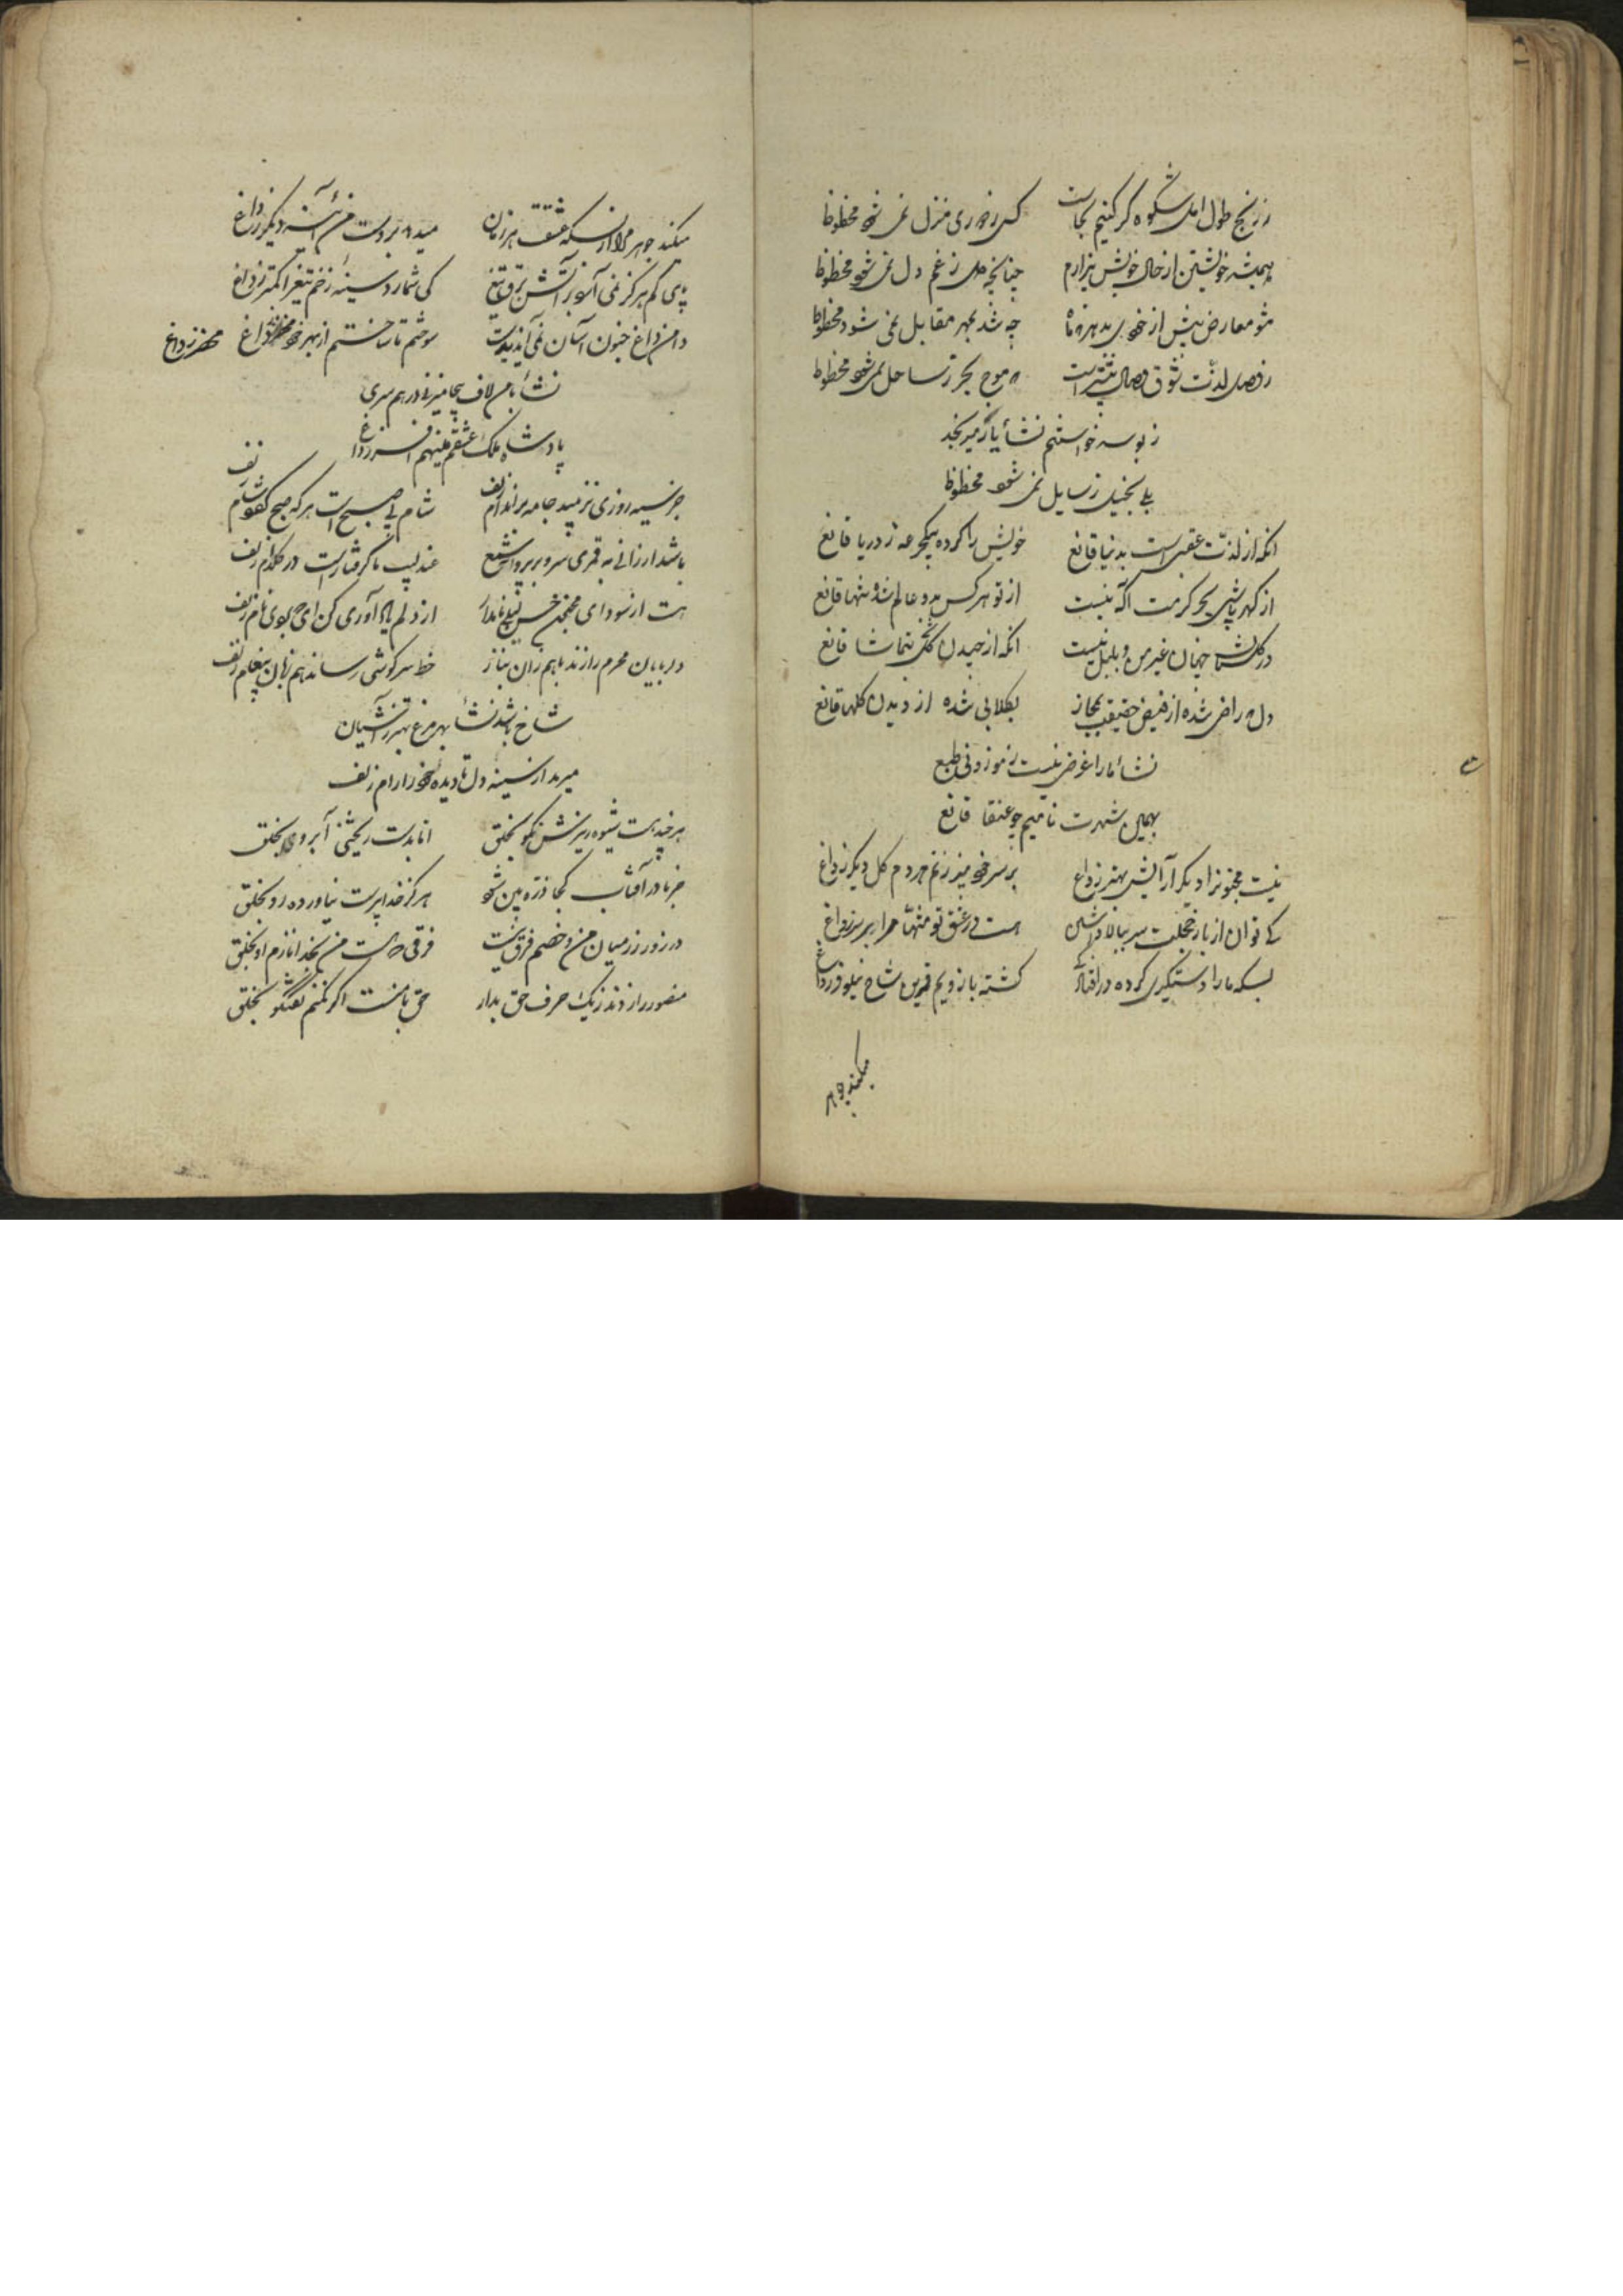 ز رنج طول امل شکوه گر کنیم بجاست کسی ز دوری منزل نمی شود محظوظ
همیشه خویشتن از حال خویش بیزارم چنانچه دل ز غم دل نمی شود محظوظ
مشو معارض بیش از خودی چه شد بمهر مقابل نمی شود محظوظ
ز وصل لذت شوق وصال بیشتر است که موج بحر ز ساحل نمی شود محظوظ
ز بوسه خواستنم نشأ یار میرنجد
بلی بخیل ز سایل نمی شود محظوظ
انکه از لذت عقبی است بدنیا قانع خویش را کرده بیکجرعه ز دریا قانع
از کهر پاشی بحر کرمت اکه نیست از تو هر کس بدو عالم شده تنها قانع
در کلستان جهان غیر من و بلبل نیست انکه از چیدن کل بتماشا قانع
دل که راضی شده از فیض حقیقت بمجاز بکلابی شده از دیدن کلها قانع
نشأ ما را غرضی نیست ز موزونی طبع
بهمین شهرت نامیم چو عنقا قانع
نیست مجنونرا دیگر آرایشی بهتر ز داغ بر سر خود میزنم هر دم کل دیگر ز داغ
کی توان از بار خجلت سر ببالا داشتن هست در عشق تو منتها مرا بر سر ز داغ
بسکه ما را دستگیری کرده در کشته بازویم قرین شاخ نیلوفر ز داغ
میکند جوهر
میکند جوهر مرا از بسکه عشقت هر زمان میدهد بر دست من آئینه دیگر ز داغ
پای کم هرکز نمی آتش برق تیغ کی شمارد سینه زخم تیغ را کمتر ز داغ
دامن داغ جنون آسان نمی آید بدست سوختم تا ساختم از بهر خود محضر ز داغ محضر ز داغ
نشأ با من لاف بیجا میزند در همسری
پادشاه ملک عشقم مینهم افسر ز داغ
جز سیه روزی نزیبد جامه بر اندام زلف شام بی صبح است هر که صبح کفو شام زلف
باشد ارزانی به قمری سرو بر پروانه شمع عندلیب ما گرفتار است در کلدام زلف
هست از سودای از دلم یاد آوری کن ای که بوی نام زلف
دلربایان محرم رازند با هم زان نیاز خط سرکوشی رساند هم زبان پیغام زلف
شاخ باشد نشأ بهر مرغ بهتر ز آشیان
میرمد از سینه دل تا دیده خود را رام زلف
هر چند هست شیوه ریزش نکو بخلق اما بدست ریختن آبروی بخلق
جز ما در آفتاب کجا ذره بین شود هرکز خدا پرست نیاورده رو بخلق
در زور رزم میان من و خصم فرق نیست فرقی که هست من بخدا نازم او بخلق
منصور را زدند ز یک حرف حق بدار حق با منست اکر نکنم گفتگو بخلق